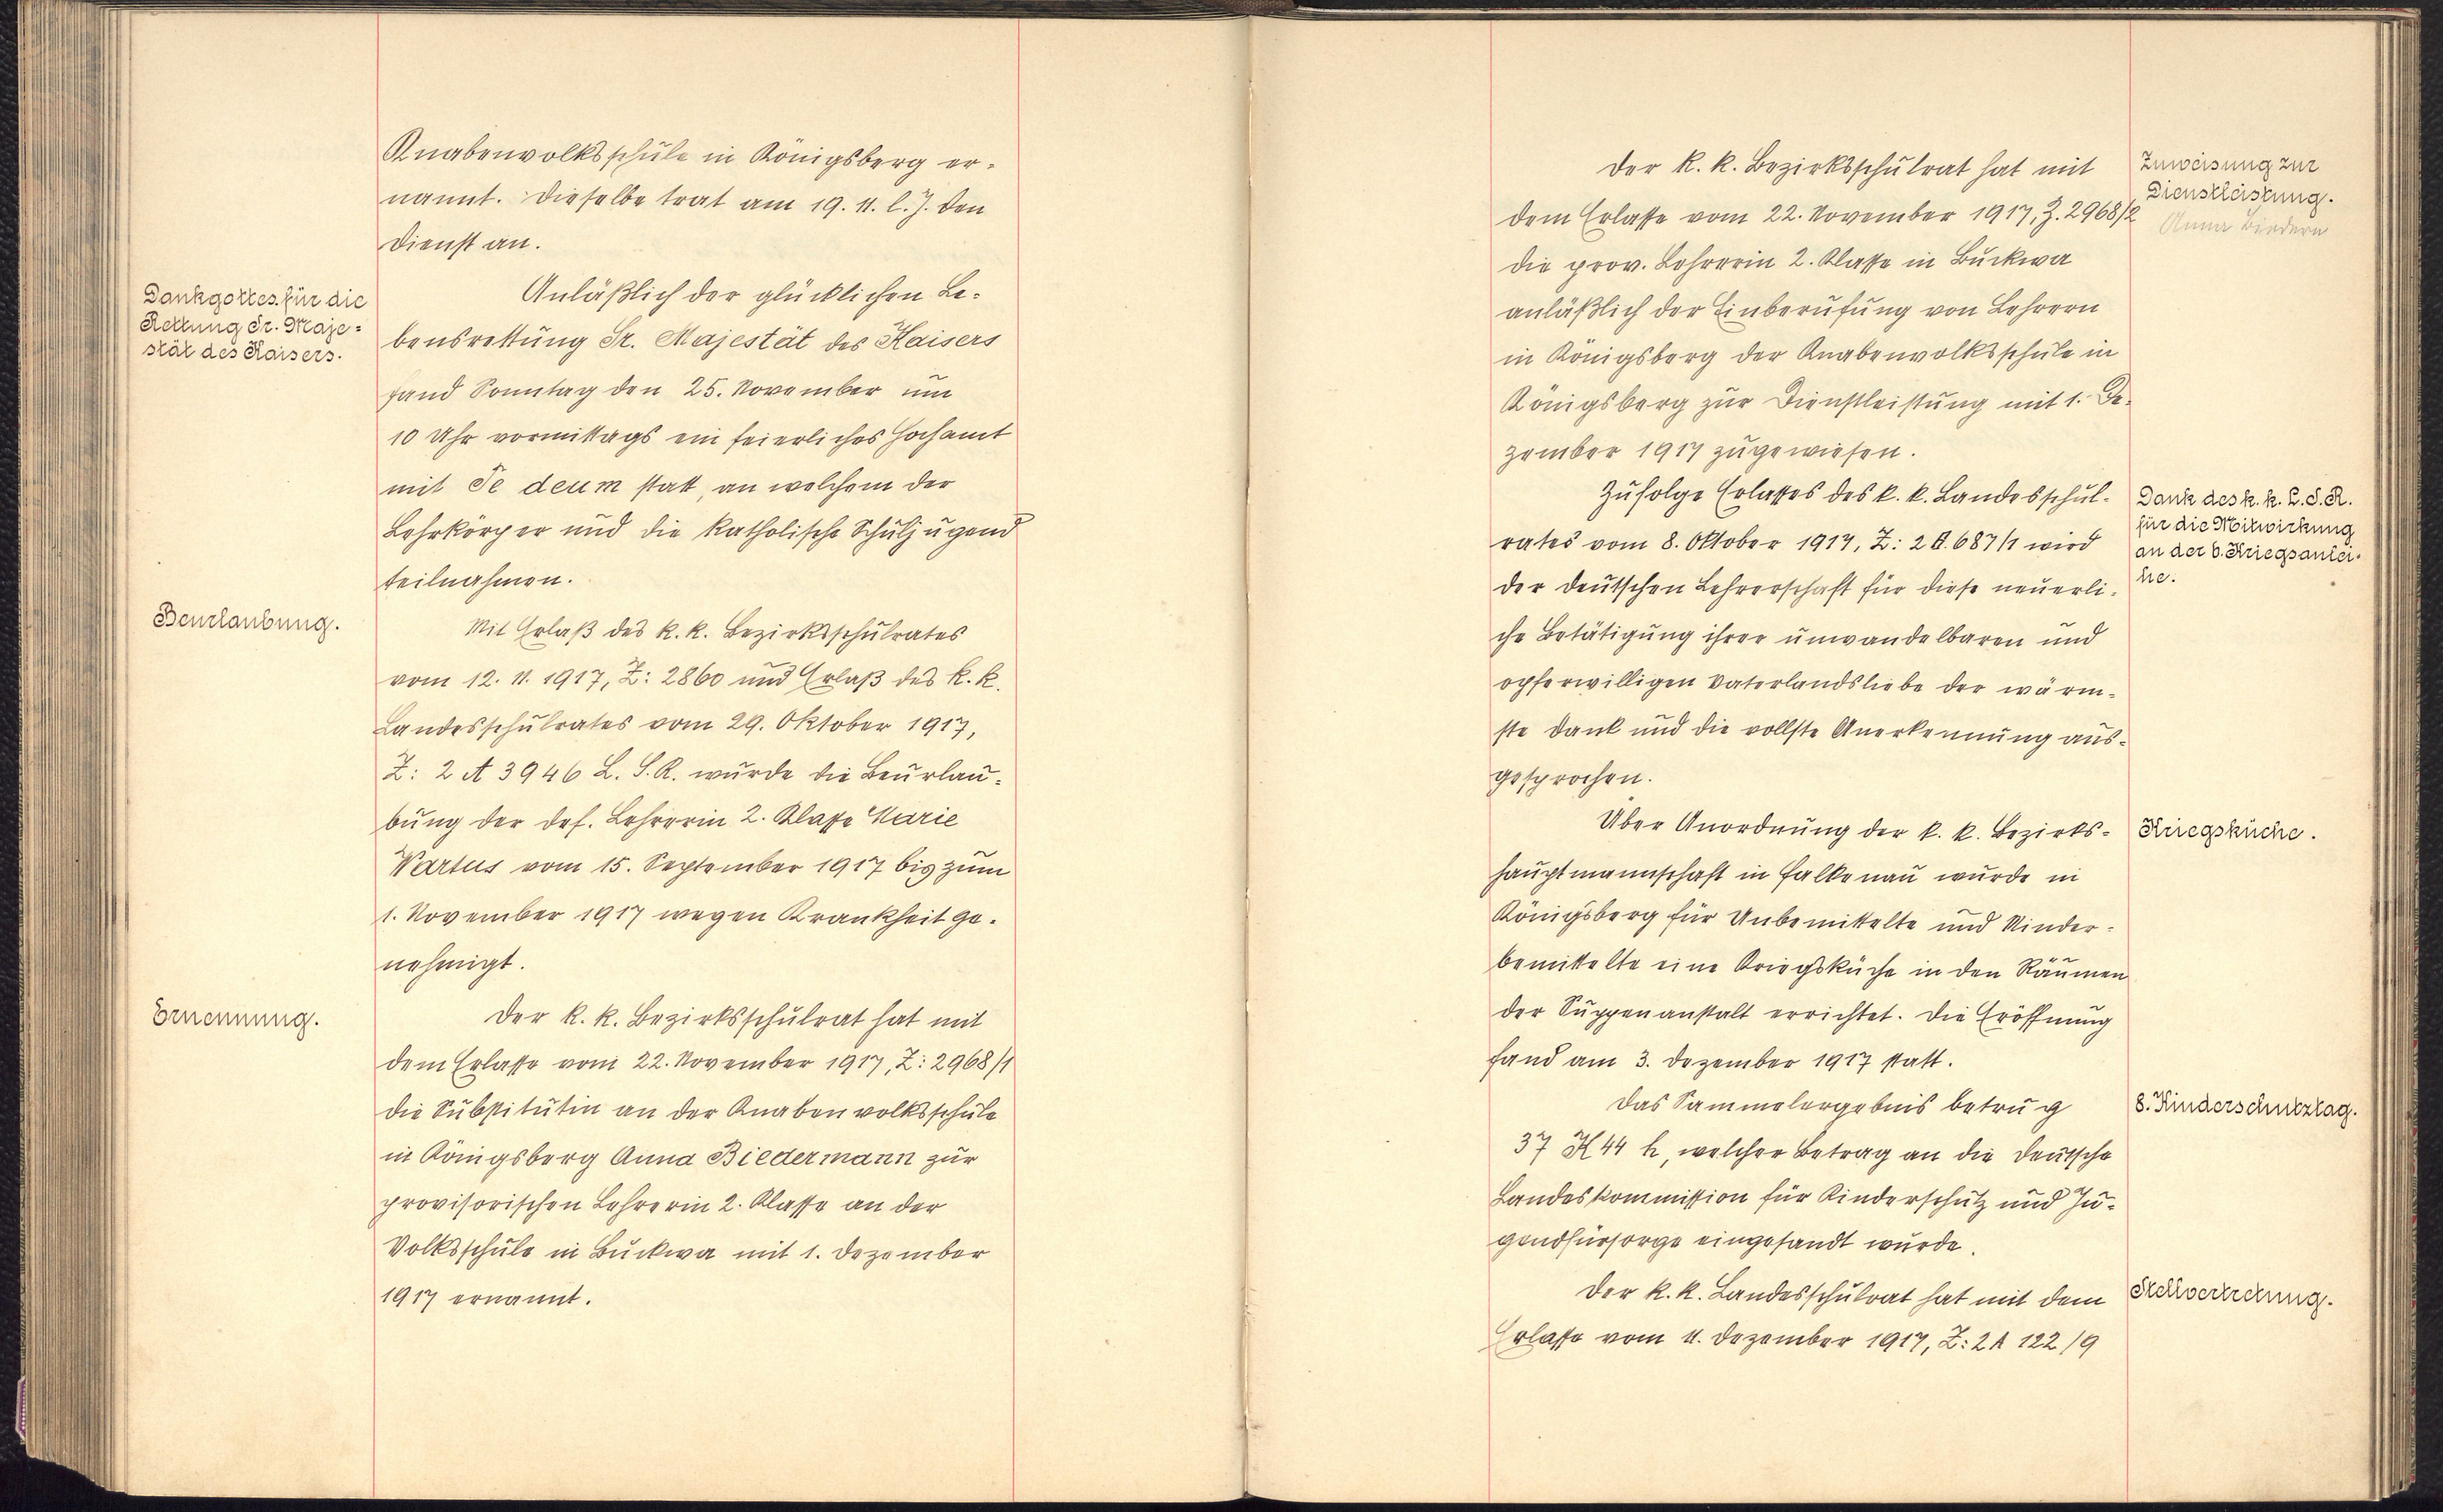 Knabenvolksschule in Königsberg er-
nannt. Dieselbe trat am 19. 11. l. J. den
Dienst an.
Dankgottes. für die
Rettung Sr. Maje-
stät des Kaisers.
Anläßlich der glücklichen Le-
bensrettung Sr. Majestät des Kaisers
fand Sonntag den 25. November um
10 Uhr vormittags ein feierliches Hochamt
mit Te deum statt, an welchem der
Lehrkörper und die katholische Schuljugend
teilnahmen.
Beurlaubung.
Mit Erlaß des k. k. Bezirksschulrates
vom 12. 11. 1917, Z: 2860 und Erlaß des k. k.
Landesschulrates vom 29. Oktober 1917,
Z: 2 A 3946 L. S. R. wurde die Beurlau-
bung der def. Lehrerin 2. Klasse Marie
Wartus vom 15. September 1917 bis zum
1. November 1917 wegen Krankheit ge-
nehmigt.
Ernennung.
Der k. k. Bezirksschulrat hat mit
dem Erlasse vom 22. November 1917, Z: 2968/1
die Substitutin an der Knabenvolksschule
in Königsberg Anna Biedermann zur
provisorischen Lehrerin 2. Klasse an der
Volksschule in Buckwa mit 1. Dezember
1917 ernannt.
Der k. k. Bezirksschulrat hat mit
dem Erlasse vom 22. November 1917, Z. 2968/2
die prov. Lehrerin 2. Klasse in Buckwa
anläßlich der Einberufung von Lehrern
in Königsberg der Knabenvolksschule in
Königsberg zur Dienstleistung mit 1. De-
zember 1917 zugewiesen.
Zuweisung zur
Dienstleistung.
Anna Biederm
Zufolge Erlasses des k. k. Landesschul-
rates vom 8. Oktober 1917, Z: 2 B. 687/1 wird
der deutschen Lehrerschaft für diese neuerli-
che Betätigung ihrer unwandelbaren und
opferwilligen Vaterlandsliebe der wärm-
ste Dank und die vollste Anerkennung aus-
gesprochen.
Dank des k. k. L. S. R.
für die Mitwirkung
an der 6. Kriegsanlei-
he.
Über Anordnung der k. k. Bezirks-
hauptmannschaft in Falkenau wurde in
Königsberg für Unbemittelte und Minder-
bemittelte eine Kriegsküche in den Räumen
der Suppenanstalt errichtet. Die Eröffnung
fand am 3. Dezember 1917 statt.
Kriegsküche.
Das Sammelergebnis betrug
37 K 44 h, welcher Betrag an die Deutsche
Landeskommission für Kinderschutz und Ju-
gendfürsorge eingesandt wurde.
8. Kinderschutztag.
Der k. k. Landesschulrat hat mit dem
Erlasse vom 4. Dezember 1917, Z: 2 A 122/9
Stellvertretung.